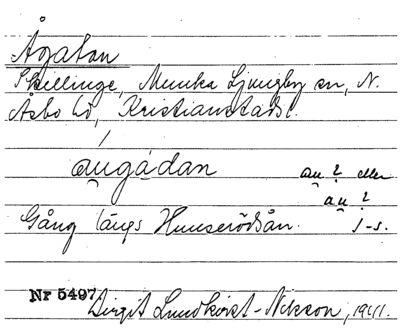 Ågatan
Skillinge, Munka Ljungby sn, N.
Åsbo hd, Kristianstads l.
áu̲gá̲dan a̲u̲ ? eller
a̲u̲ ?
Gång längs Hunserödsån. 1-s.
Nr 5497 Birgit Lundkvist-Nilsson, 1941.